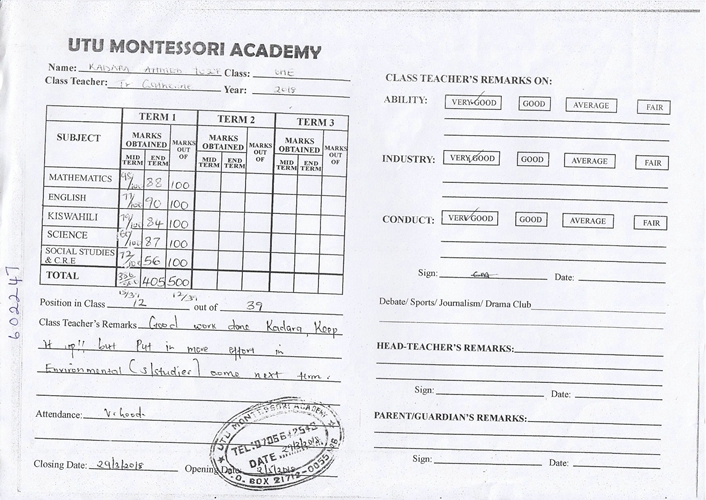 UTU MONTESSORI ACADEMY
Name: KADARA AHMED Class: ONE
Class Teacher: Tr Catherine Year: 2018
SUBJECT TERM 1 TERM 2 TERM 3
MARKS OBTAINED MARKS OUT OF MARKS OBTAINED MARKS OUT OF MARKS OBTAINED MARKS OUT OF
MID TERM END TERM MID TERM END TERM MID TERM END TERM
MATHEMATICS 98/100 88 100
ENGLISH 77/100 90 100
KISWAHILI 84 100
SCIENCE 87 100
SOCIAL STUDIES & C.R.E 72/100 56 100
TOTAL 405 500
13/39 12/39
Position in Class 12 out of 39
Class Teacher's Remarks Good work done Kadara, Keep
it up!! but Put in more effort in
Environmental (s/studies) come next term.
Attendance: V. Good
Closing Date: 29/3/2018 Opening Date: 2/5/2018
UTU MONTESSORI ACADEMY
TEL:
DATE 29/3/2018
P.O. BOX 21712-00
602247
CLASS TEACHER'S REMARKS ON:
ABILITY: VERY GOOD GOOD AVERAGE FAIR
INDUSTRY: VERY GOOD GOOD AVERAGE FAIR
CONDUCT: VERY GOOD GOOD AVERAGE FAIR
Sign: Date:
Debate/ Sports/ Journalism/ Drama Club
HEAD-TEACHER'S REMARKS:
Sign: Date:
PARENT/GUARDIAN'S REMARKS:
Sign: Date: